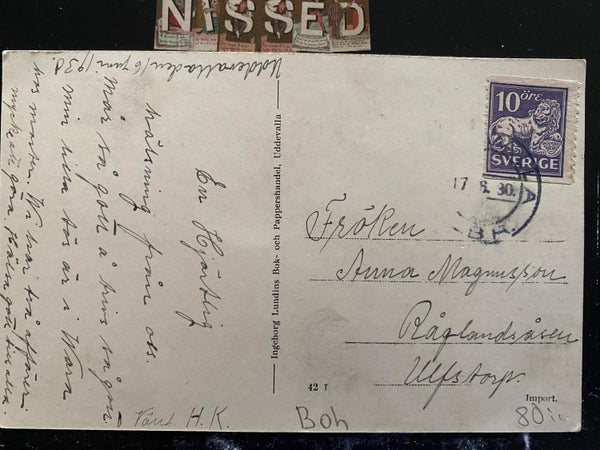 NYSSED
Uddevalla den 16 juni 1930.
En Hjärtlig
hälsning från oss.
Mår så gott å trivs så gott
min lilla tös är i Wara
hos mostra. Vi har två affärer
mycke att göra Hälsa gott
Vänl H.K.
Ingeborg Lundins Bok- och Pappershandel, Uddevalla
42 T
Import.
10 ÖRE
SVERIGE
17 6. 30.
Fröken
Anna Magnusson
Råglandsåsen
Ulfstorp.
Boh
80:-